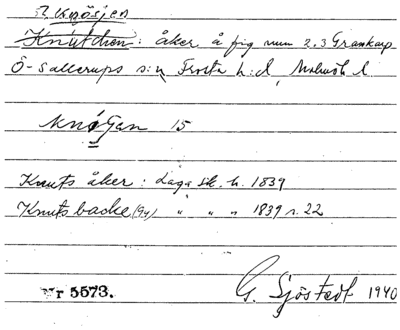 Knösjen
Knutchen: åker å fig num 2.3 Granskarp
Ö-Sallerups s:n Frosta h:d, Malmöh. l
Knösjen 15
Knuts åker: Laga sk. h. 1839
Knutsbacke (Gy) " " " 1839 s. 22
Nr 5573. G. Sjöstedt 1940